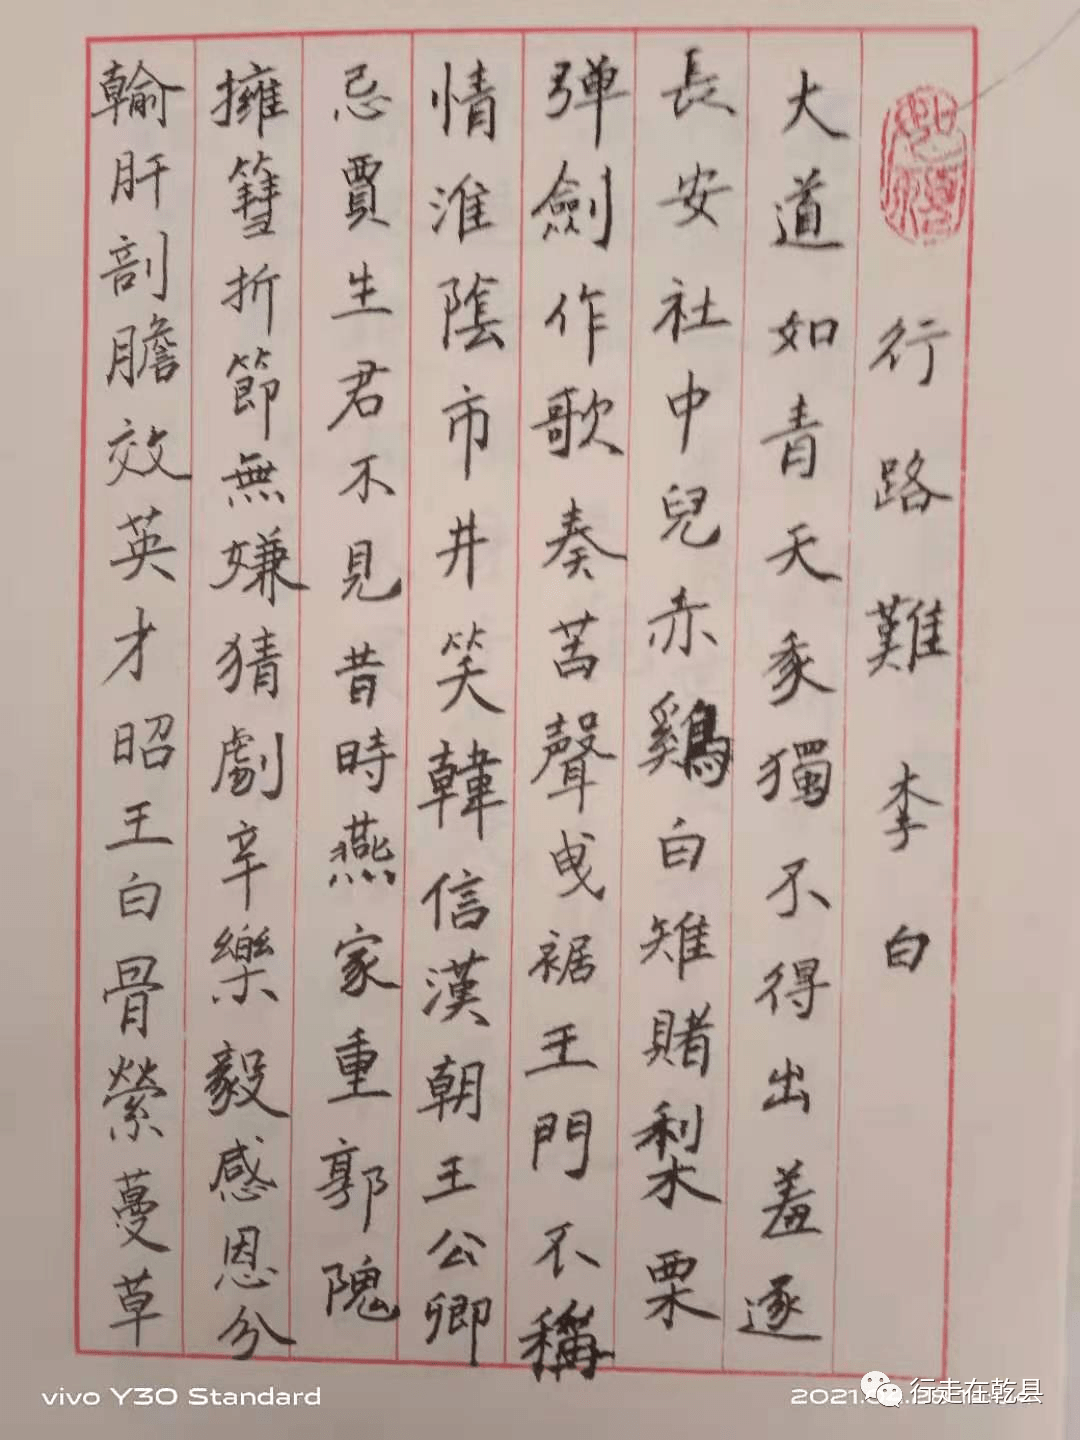 行路難 李白
大道如青天豕獨不得出羞逐
長安社中兒赤鷄白雉賭梨栗
弾劍作歌奏苦聲曳裾王門不稱
情淮陰市井笑韓信漢朝王公卿
忌賈生君不見昔時燕家重郭隗
擁篲折節無嫌猜劇辛樂毅感恩分
翰肝剖膽效英才昭王白骨縈蔓草
vivo Y30 Standard
行走在乾县